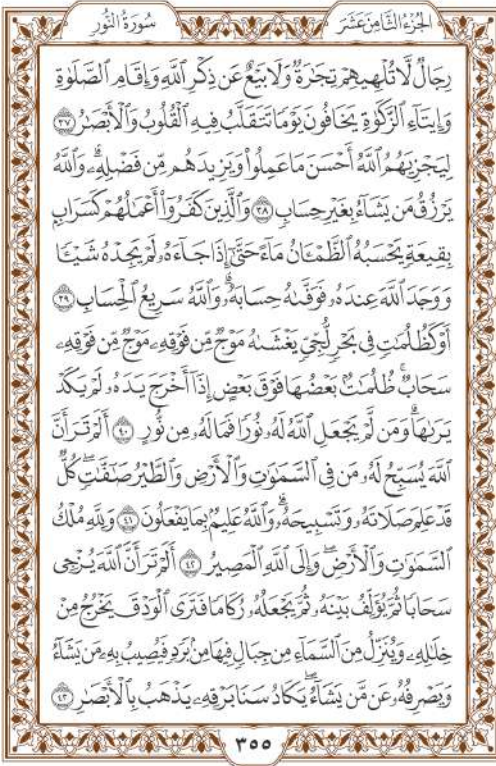 الجزء الثامن عشر
سورة النور
رِجَالٌ لَّا تُلْهِيهِمْ تِجَٰرَةٌ وَلَا بَيْعٌ عَن ذِكْرِ ٱللَّهِ وَإِقَامِ ٱلصَّلَوٰةِ
وَإِيتَآءِ ٱلزَّكَوٰةِ يَخَافُونَ يَوْمًا تَتَقَلَّبُ فِيهِ ٱلْقُلُوبُ وَٱلْأَبْصَٰرُ ٣٧
لِيَجْزِيَهُمُ ٱللَّهُ أَحْسَنَ مَا عَمِلُوا۟ وَيَزِيدَهُم مِّن فَضْلِهِۦ وَٱللَّهُ
يَرْزُقُ مَن يَشَآءُ بِغَيْرِ حِسَابٍ ٣٨ وَٱلَّذِينَ كَفَرُوٓا۟ أَعْمَٰلُهُمْ كَسَرَابٍۭ
بِقِيعَةٍ يَحْسَبُهُ ٱلظَّمْـَٔانُ مَآءً حَتَّىٰٓ إِذَا جَآءَهُۥ لَمْ يَجِدْهُ شَيْـًٔا
وَوَجَدَ ٱللَّهَ عِندَهُۥ فَوَفَّىٰهُ حِسَابَهُۥ وَٱللَّهُ سَرِيعُ ٱلْحِسَابِ ٣٩
أَوْ كَظُلُمَٰتٍ فِى بَحْرٍ لُّجِّىٍّ يَغْشَىٰهُ مَوْجٌ مِّن فَوْقِهِۦ مَوْجٌ مِّن فَوْقِهِۦ
سَحَابٌ ۚ ظُلُمَٰتٌۢ بَعْضُهَا فَوْقَ بَعْضٍ إِذَآ أَخْرَجَ يَدَهُۥ لَمْ يَكَدْ
يَرَىٰهَا ۗ وَمَن لَّمْ يَجْعَلِ ٱللَّهُ لَهُۥ نُورًا فَمَا لَهُۥ مِن نُّورٍ ٤٠ أَلَمْ تَرَ أَنَّ
ٱللَّهَ يُسَبِّحُ لَهُۥ مَن فِى ٱلسَّمَٰوَٰتِ وَٱلْأَرْضِ وَٱلطَّيْرُ صَٰٓفَّٰتٍ ۖ كُلٌّ
قَدْ عَلِمَ صَلَاتَهُۥ وَتَسْبِيحَهُۥ ۗ وَٱللَّهُ عَلِيمٌۢ بِمَا يَفْعَلُونَ ٤١ وَلِلَّهِ مُلْكُ
ٱلسَّمَٰوَٰتِ وَٱلْأَرْضِ ۖ وَإِلَى ٱللَّهِ ٱلْمَصِيرُ ٤٢ أَلَمْ تَرَ أَنَّ ٱللَّهَ يُزْجِى
سَحَابًا ثُمَّ يُؤَلِّفُ بَيْنَهُۥ ثُمَّ يَجْعَلُهُۥ رُكَامًا فَتَرَى ٱلْوَدْقَ يَخْرُجُ مِنْ
خِلَٰلِهِۦ وَيُنَزِّلُ مِنَ ٱلسَّمَآءِ مِن جِبَالٍ فِيهَا مِنۢ بَرَدٍ فَيُصِيبُ بِهِۦ مَن يَشَآءُ
وَيَصْرِفُهُۥ عَن مَّن يَشَآءُ ۖ يَكَادُ سَنَا بَرْقِهِۦ يَذْهَبُ بِٱلْأَبْصَٰرِ ٤٣
٣٥٥